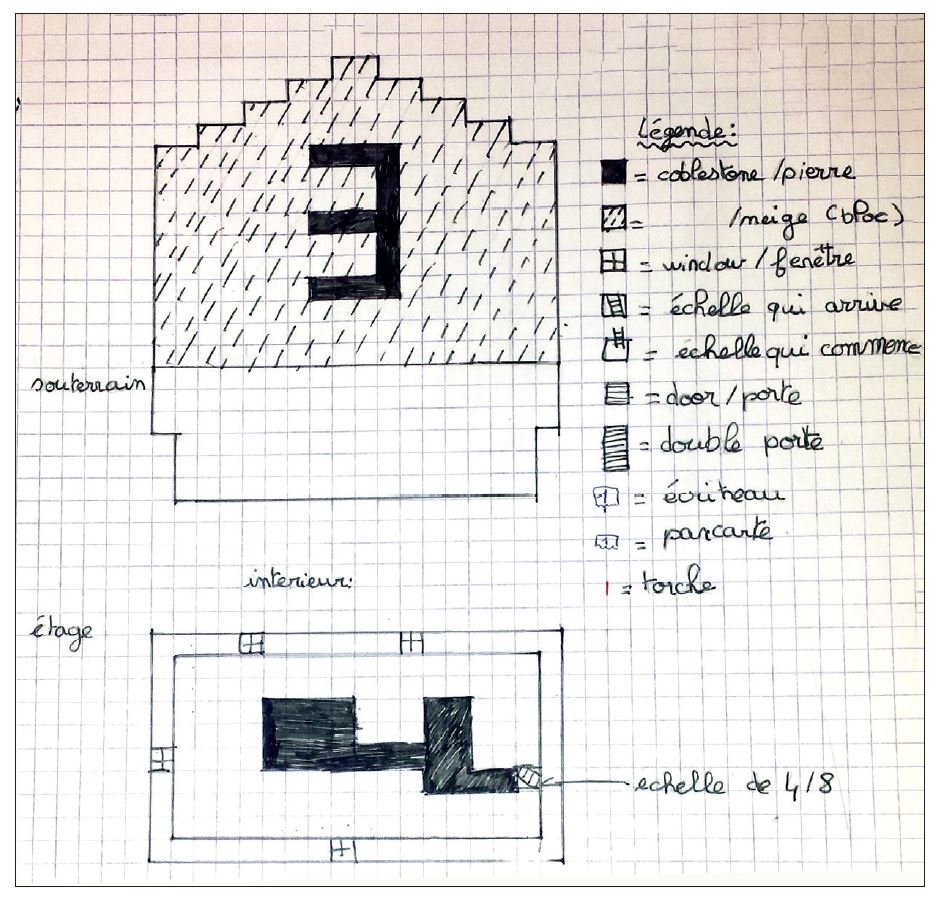 Légende:
= coblestone / pierre
= /neige (bloc)
= window / fenêtre
= échelle qui arrive
= échelle qui commence
= door / porte
= double porte
= écriteau
= pancarte
= torche
souterrain
interieur:
étage
echelle de 4/8